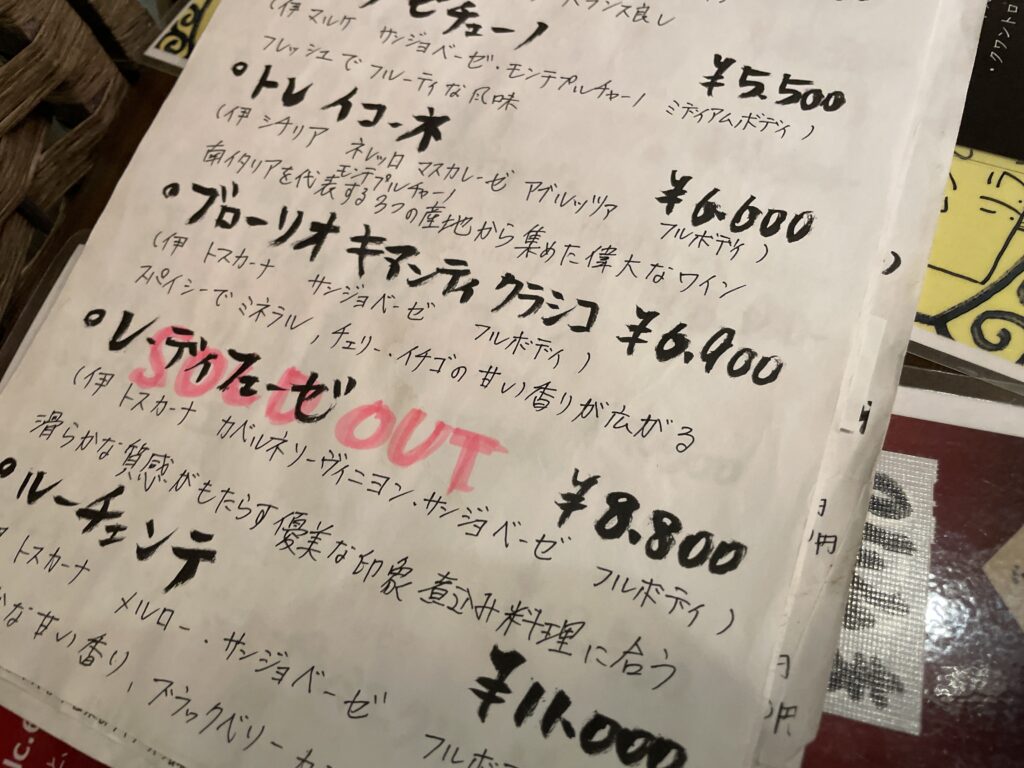 バランス良し
ビチューノ
(伊 マルケ サンジョベーゼ・モンテプルチャーノ ミディアムボディ)
¥5.500
フレッシュでフルーティな風味
・トレ イコーネ
(伊 シチリア ネレッロ マスカレーゼ アブルッツァ フルボディ)
モンテプルチャーノ
¥6.600
南イタリアを代表する3つの産地から集めた偉大なワイン
・ブローリオ キアンティ クラシコ ¥6.900
(伊 トスカーナ サンジョベーゼ フルボディ)
スパイシーでミネラル,チェリー・イチゴの甘い香りが広がる
・レ・ディフェーゼ
SOLD OUT
¥8.800
(伊 トスカーナ カベルネソーヴィニヨン.サンジョベーゼ フルボディ)
滑らかな質感がもたらす優美な印象 煮込み料理に合う
・ルーチェンテ
¥11.000
トスカーナ メルロー・サンジョベーゼ フルボデ
な甘い香り、ブラックベリー
・クワントロ
円
円
lc.